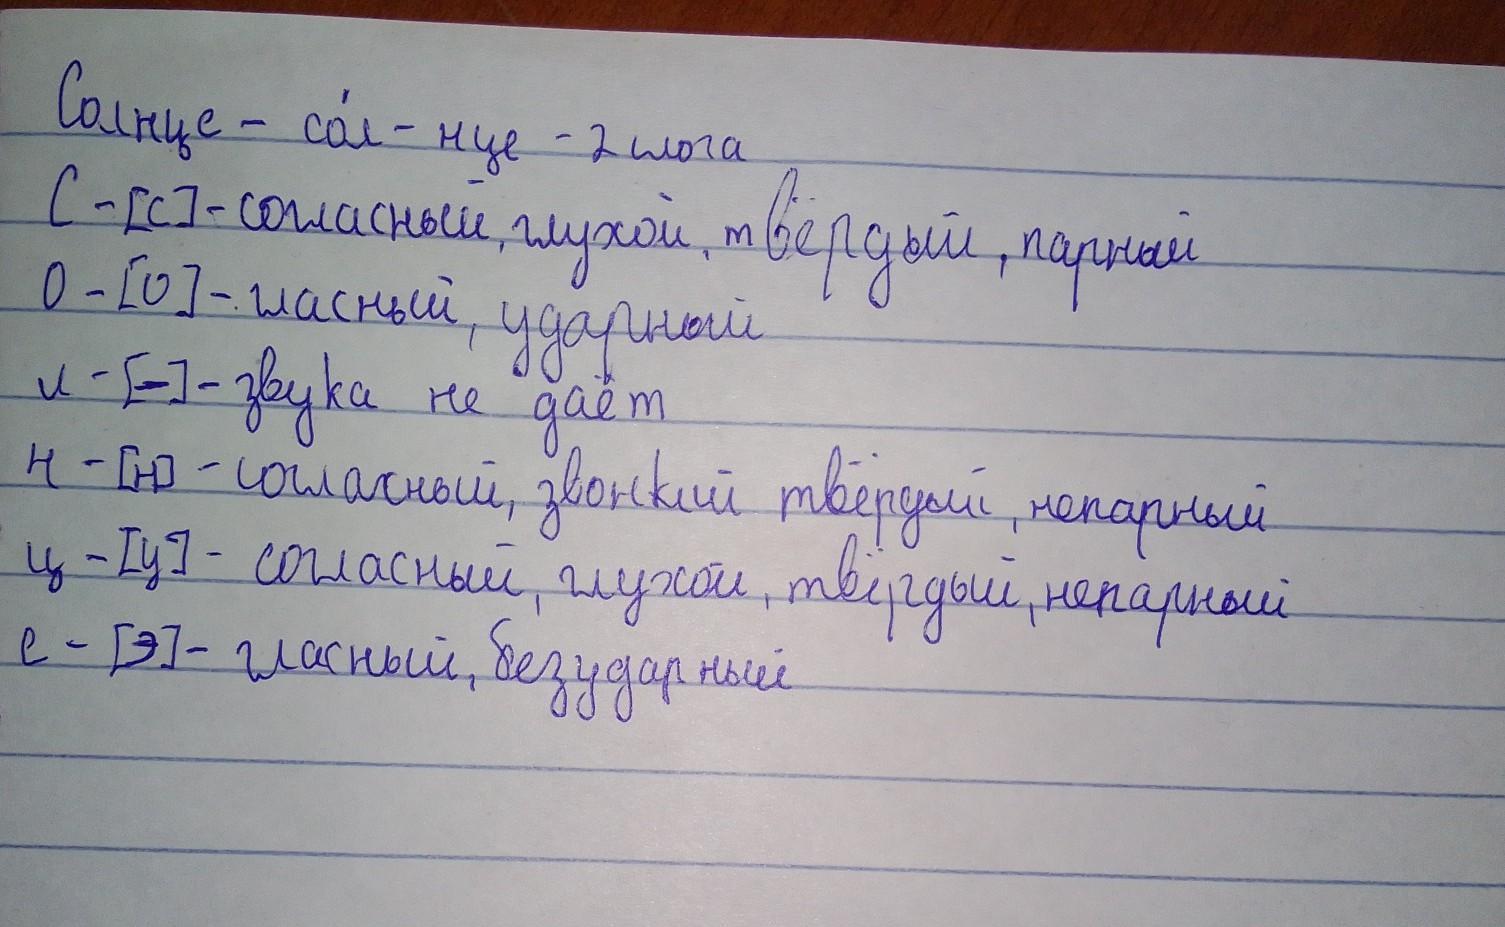 Солнце - со́л - нце - 2 слога
С - [с] - согласный, глухой, твёрдый, парный
О - [О] - гласный, ударный
л - [-] - звука не даёт
н - [н] - согласный, звонкий твёрдый, непарный
ц - [ц] - согласный, глухой, твёрдый, непарный
е - [э] - гласный, безударный